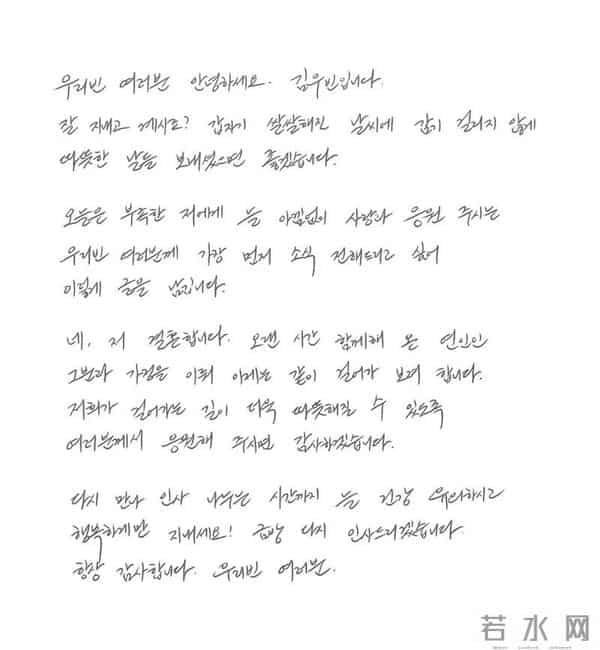 우리빈 여러분 안녕하세요. 김우빈입니다.
잘 지내고 계시죠? 갑자기 쌀쌀해진 날씨에 감기 걸리지 않게
따뜻한 날들 보내셨으면 좋겠습니다.
오늘은 부족한 저에게 늘 아낌없이 사랑과 응원 주시는
우리빈 여러분께 가장 먼저 소식 전해드리고 싶어
이렇게 글을 남깁니다.
네, 저 결혼합니다. 오랜 시간 함께해 온 연인인
그분과 가정을 이뤄 이제는 같이 걸어가 보려 합니다.
저희가 걸어가는 길이 더욱 따뜻해질 수 있도록
여러분께서 응원해 주시면 감사하겠습니다.
다시 만나 인사 나누는 시간까지 늘 건강 유의하시고
행복하게만 지내세요! 금방 다시 인사드리겠습니다.
항상 감사합니다. 우리빈 여러분.
若水网